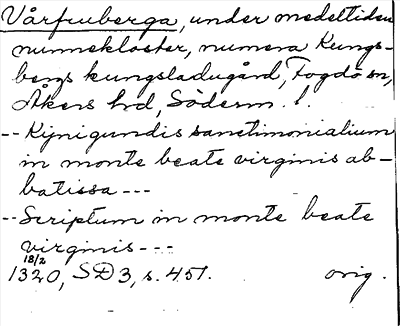 Vårfruberga, under medeltiden
nunnekloster, numera Kungs-
bergs kungsladugård, Fogdö sn,
Åkers hd, Söderm. l.
-- Kynigundis sanctimonialium
in monte beate virginis ab-
batissa ---
-- Scriptum in monte beate
virginis ---
18/2
1320, SD 3, s. 451. orig.